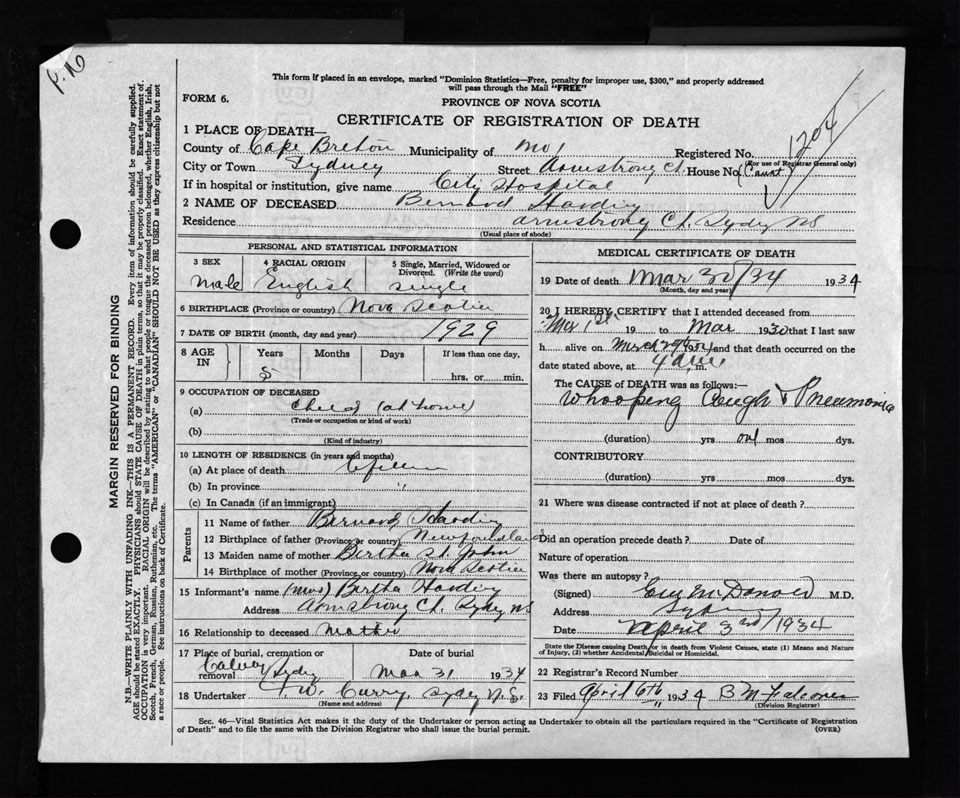 P. 16
This form if placed in an envelope, marked "Dominion Statistics—Free, penalty for improper use, $300," and properly addressed
will pass through the Mail "FREE"
FORM 6.
PROVINCE OF NOVA SCOTIA
CERTIFICATE OF REGISTRATION OF DEATH
1204
1 PLACE OF DEATH—
County of Cape Breton Municipality of Registered No.
(For use of Registrar General only)
City or Town Sydney Street Armstrong Ct. House No. (Court)
If in hospital or institution, give name City Hospital
2 NAME OF DECEASED Bernard Harding
Residence Armstrong Ct, Sydney NS
(Usual place of abode)
PERSONAL AND STATISTICAL INFORMATION
3 SEX 4 RACIAL ORIGIN 5 Single, Married, Widowed or Divorced. (Write the word)
male English single
6 BIRTHPLACE (Province or country) Nova Scotia
7 DATE OF BIRTH (month, day and year) 1929
8 AGE IN Years Months Days If less than one day,
5 hrs. or min.
9 OCCUPATION OF DECEASED
(a) child (at home)
(Trade or occupation or kind of work)
(b)
(Kind of industry)
10 LENGTH OF RESIDENCE (in years and months)
(a) At place of death
(b) In province "
(c) In Canada (if an immigrant)
Parents
11 Name of father Bernard Harding
12 Birthplace of father (Province or country) Newfoundland
13 Maiden name of mother Bertha St. John
14 Birthplace of mother (Province or country) Nova Scotia
15 Informant's name (Mrs) Bertha Harding
Address Armstrong Ct, Sydney NS
16 Relationship to deceased Mother
17 Place of burial, cremation or removal Date of burial
Calvary Sydney Mar 31 1934
18 Undertaker W. Curry, Sydney N.S.
(Name and address)
MEDICAL CERTIFICATE OF DEATH
19 Date of death Mar 30/34 1934
(Month, day and year)
20 I HEREBY CERTIFY that I attended deceased from
Mar 1st 19 to Mar 1930 that I last saw
h alive on March 29th and that death occurred on
date stated above, at 4 a.m. m.
The CAUSE of DEATH was as follows:—
Whooping Cough & Pneumonia
(duration) yrs one mos dys.
CONTRIBUTORY
(duration) yrs mos dys.
21 Where was disease contracted if not at place of death?
Did an operation precede death? Date of
Nature of operation
Was there an autopsy?
(Signed) McDonald M.D.
Address Sydney
Date April 3rd / 1934
State the Disease causing Death or in death from Violent Causes, state (1) Means and Nature of Injury, (2) whether Accidental, Suicidal or Homicidal.
22 Registrar's Record Number
23 Filed April 6th 1934 B M Falconer
(Division Registrar)
Sec. 46—Vital Statistics Act makes it the duty of the Undertaker or person acting as Undertaker to obtain all the particulars required in the "Certificate of Registration
of Death" and to file the same with the Division Registrar who shall issue the burial permit.
(OVER)
MARGIN RESERVED FOR BINDING
N.B.—WRITE PLAINLY WITH UNFADING INK—THIS IS A PERMANENT RECORD. Every item of information should be carefully supplied.
AGE should be stated EXACTLY. PHYSICIANS should STATE CAUSE OF DEATH in plain terms, so that it may be properly classified. Exact statement of
OCCUPATION is very important. RACIAL ORIGIN will be described by stating to what people or tongue the deceased person belonged, whether English, Irish,
Scotch, French, German, Russian, Ruthenian, etc. The terms "AMERICAN" or "CANADIAN" SHOULD NOT BE USED as they express citizenship but not
a race or people. See instructions on back of Certificate.